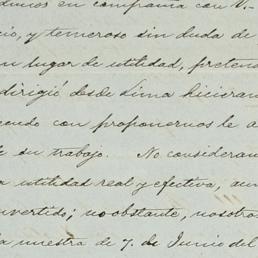 dimos en compañía con V.-
cio, y temeroso sin duda de
en lugar de utilidad, preten
dirigió desde Lima hicieran
endo con proponernos le a
de su trabajo. No consideram
a utilidad real y efectiva, aun
nvertido; no obstante, nosotros
la nuestra de 7 de Junio del